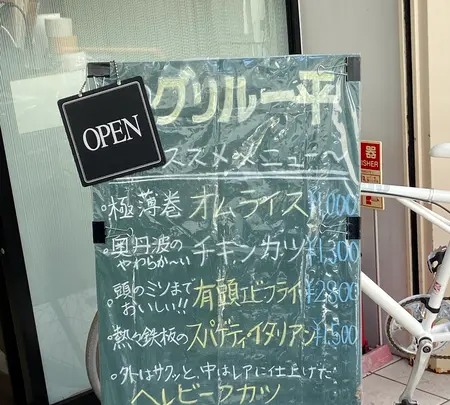 グリル一平
OPEN
ススメメニュー〜
器
ISHER
◦極薄巻 オムライス ¥1,000
◦奥丹波の やわらか〜い チキンカツ ¥1,300
◦頭のミソまで おいしい!! 有頭エビフライ ¥2,800
◦熱々鉄板の スパゲティ・イタリアン ¥1,500
◦外はサクッと、中はレアに仕上げた
ヘレビーフカツ